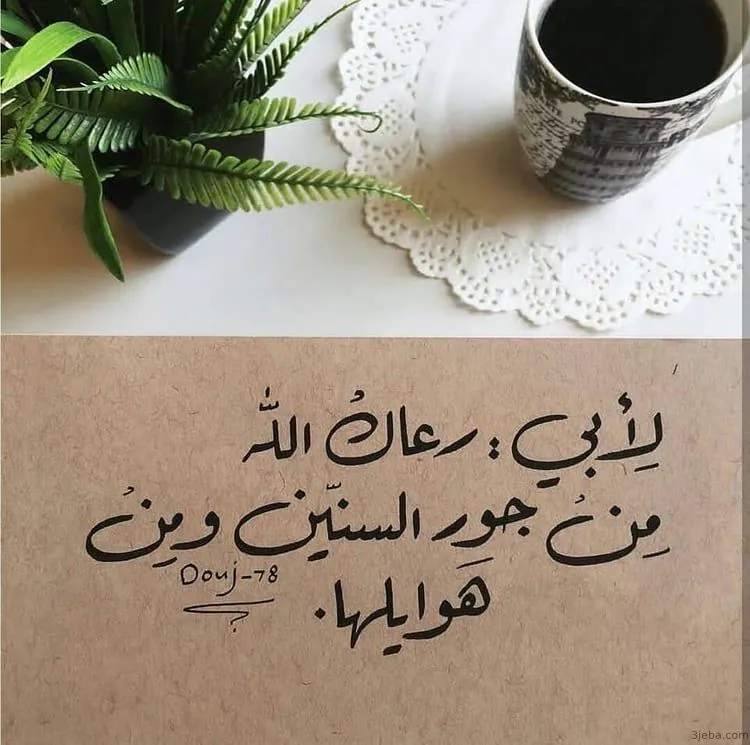 لِأبي : رعاكْ اللّٰه
مِنْ جوَر السنّين ومِنْ
هوايلها.
Douj-78
3jeba.com